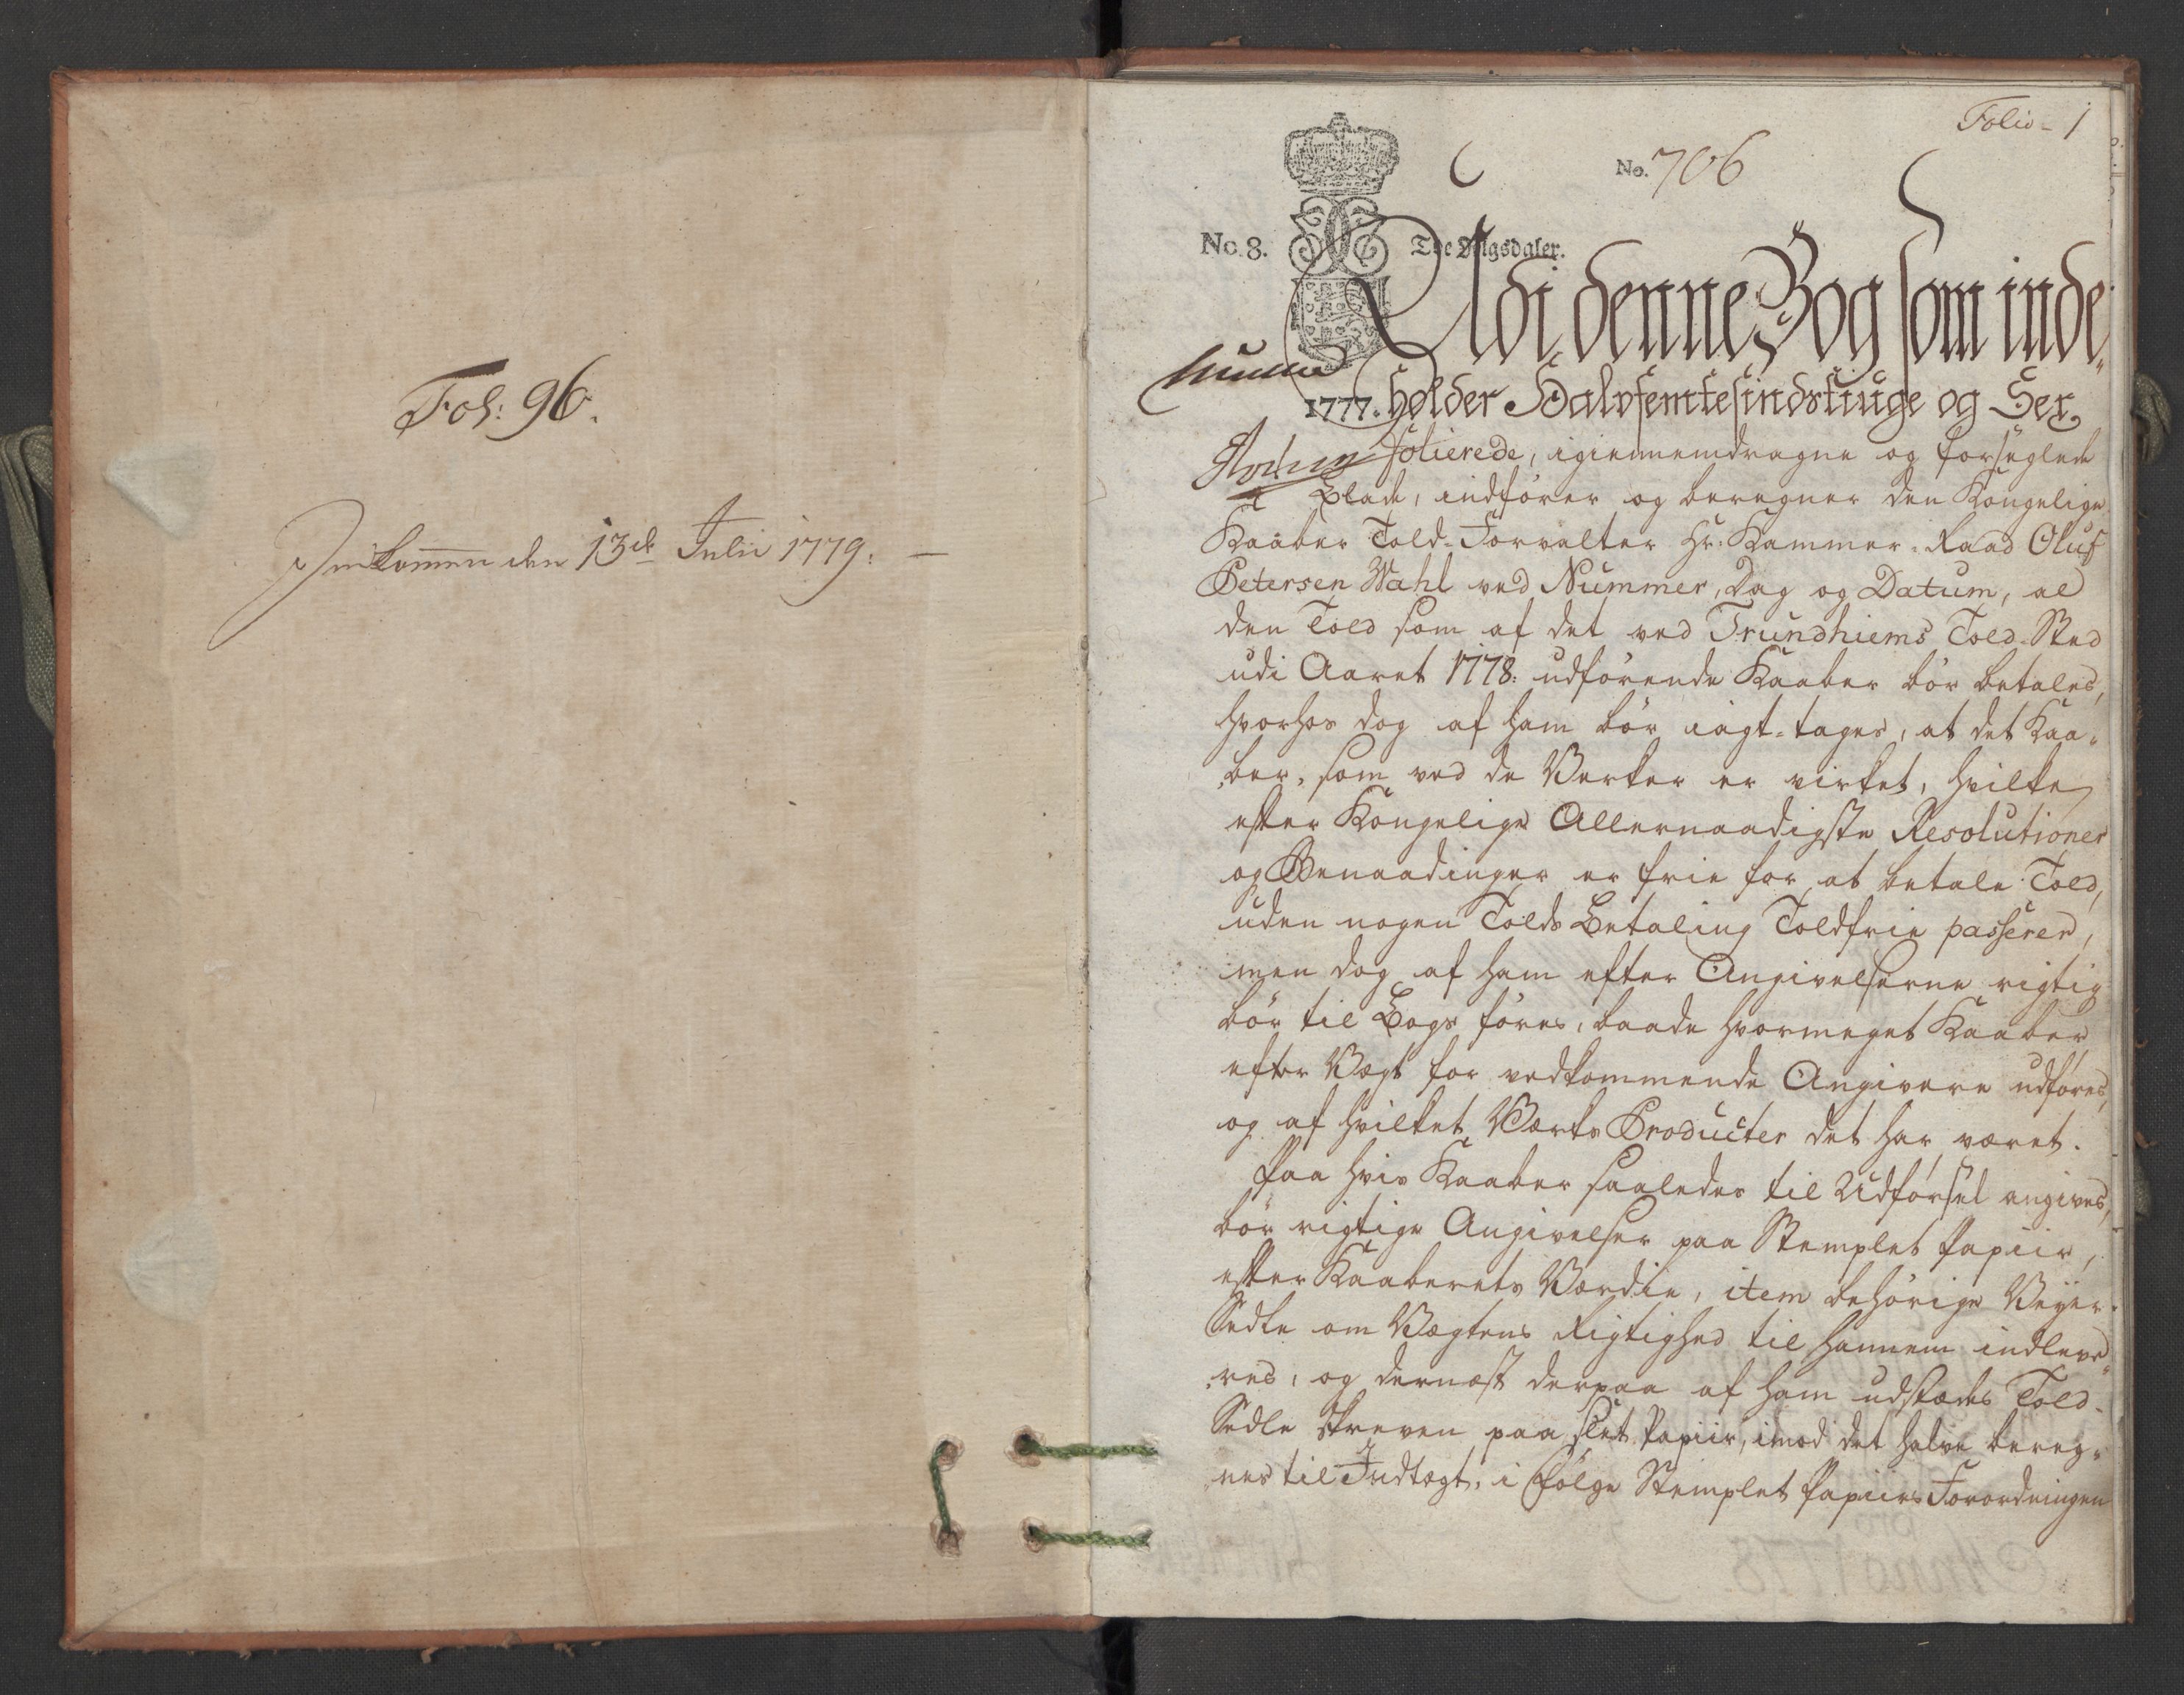 Fol: 96.
Indkommen den 13de Julii 1779. —
Folio - 1
No. 706
No. 8.
Toe Rigsdaler.
Udi denne Bog som inde„
1777. holder Halvfemtesindstiuge og Sex
folierede, igiennemdragne og forseglede
Blade, indfører og beregner den Kongelige
Kaaber Told-Forvalter Hr: Kammer-Raad Oluf
Petersen Wahl ved Nummer, Dag og Datum, al
den Told som af det ved Trundhiems Told-Sted
udi Aaret 1778: udførende Kaaber bør betales,
hvorhos dog af ham bør iagt-tages, at det Kaa„
„ber, som ved de Verker er virket, hvilke
efter Kongelige Allernaadigste Resolutioner
og Benaadinger er frie for at betale Told,
uden nogen Tolds Betaling Toldfrie passerer,
men dog af ham efter Angivelserne rigtig
bør til Bogs føres, baade hvormeget Kaaber
efter Vægt for vedkommende Angivere udføres,
og af hvilket Værks Producter det har været.
Paa hvis Kaaber saaledes til Udførsel angives,
bør rigtige Angivelser paa Stemplet Papiir,
efter Kaaberets Værdie, item behørige Veyer-
Sedle om Vægtens Rigtighed til hannem indleve„
„res, og dernæst derpaa af ham udstædes Told-
Sedle skreven paa slet Papiir, imod det halve bereg„
nes til Indtægt, i Følge Stemplet Papiirs Forordningen